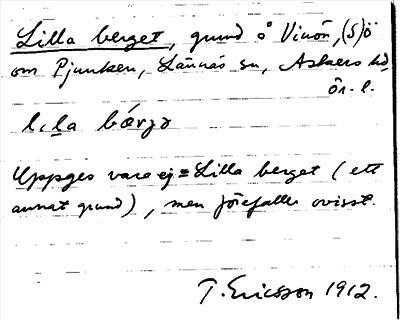 Lilla berget, grund å Vinön, (S)ö
om Pjunken, Lännäs sn, Askers hd,
Ör. l.
lıla bærjə
Uppges vara ej = Lilla berget (ett
annat grund), men förefaller ovisst.
T. Ericsson 1912.